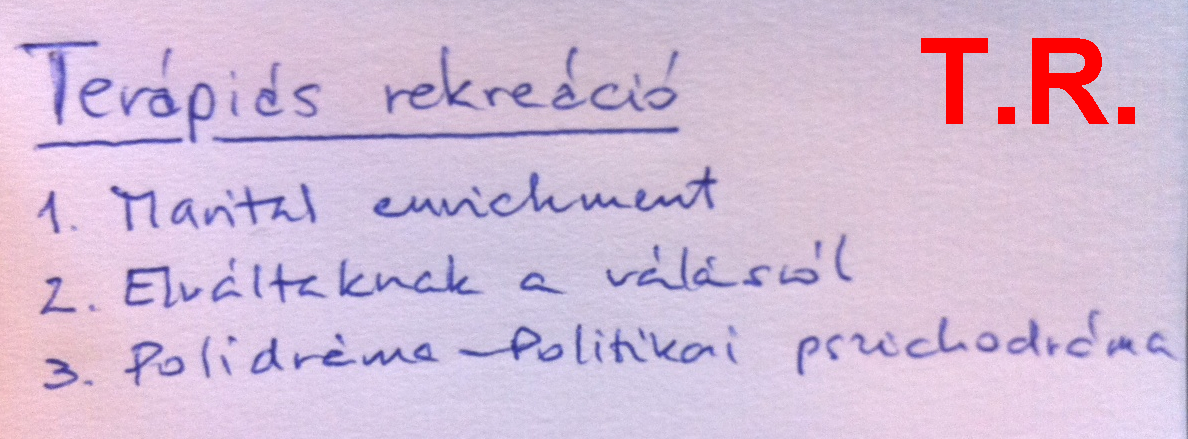 Terápiás rekreáció
T.R.
1. Marital enrichment
2. Elváltaknak a válásról
3. Polidráma - Politikai pszichodráma